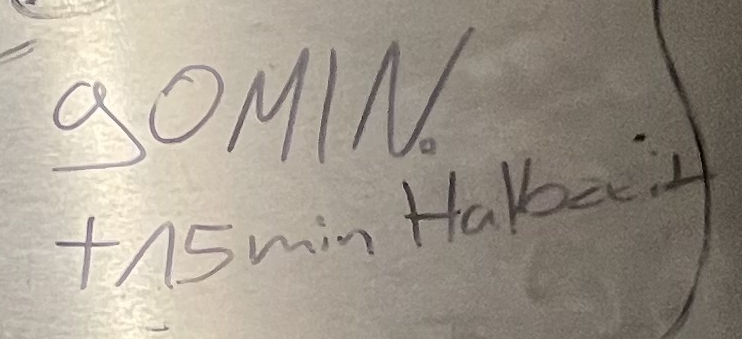 90MIN.
+15min Halbzeit